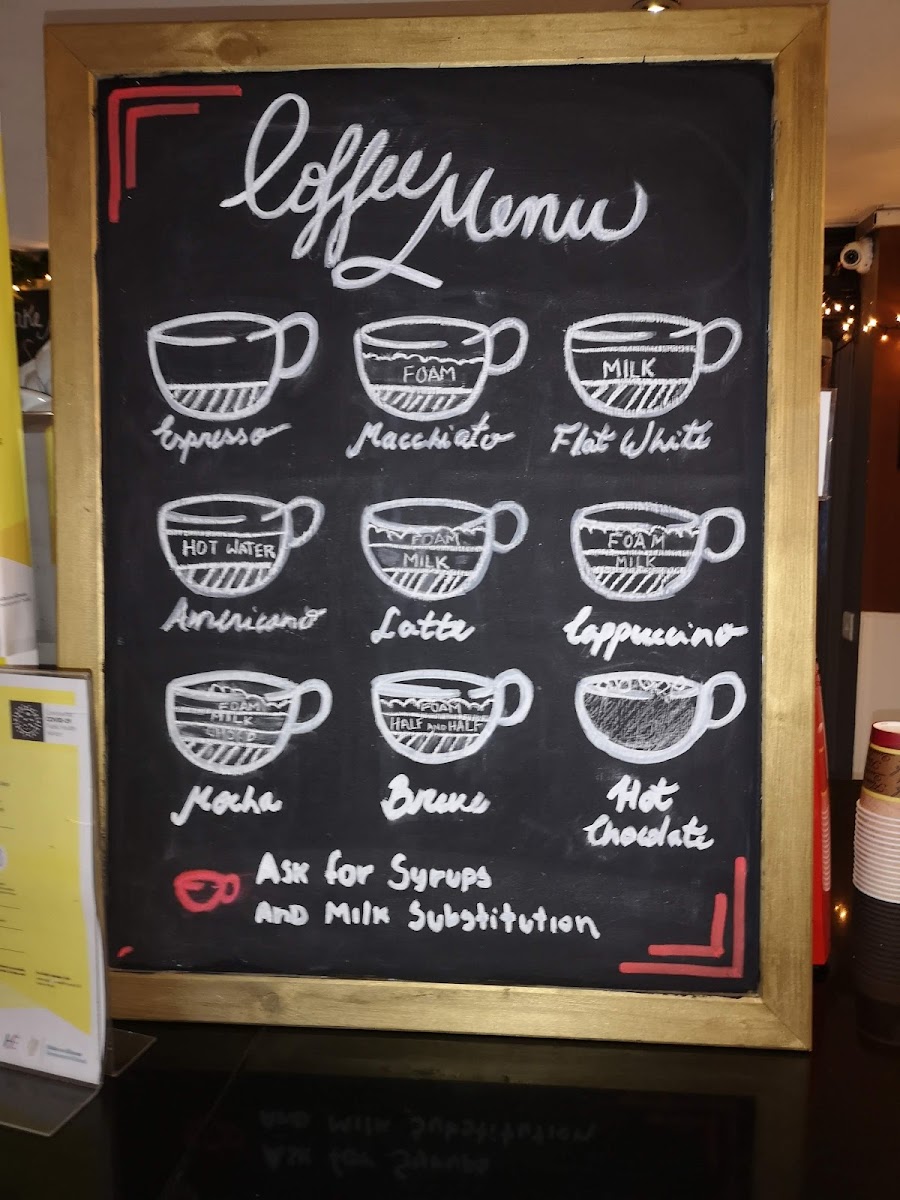 Coffee Menu
FOAM
MILK
Espresso
Macchiato
Flat White
HOT WATER
FOAM
MILK
FOAM
MILK
Americano
Latte
Cappuccino
FOAM
MILK
CHOCO
FOAM
HALF AND HALF
Mocha
Breve
Hot
Chocolate
Ask for Syrups
AND Milk Substitution
COVID-19